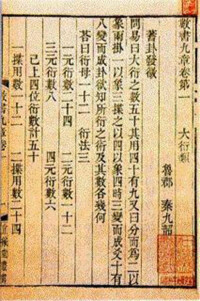 數書九章卷第一　大衍類
魯郡　秦九韶
蓍卦發微
問易曰大衍之數五十其用四十有九又曰分而爲二以
象兩掛一以象三揲之以四以象四時三變而成爻十有
八變而成卦欲知所衍之術及其數各幾何
荅曰衍母一十二　衍法三
一元衍數二十四　二元衍數一十二
三元衍數八　四元衍數六
已上四位衍數計五十
一揲用數一十二　二揲用數二十四
數書九章卷一
宜稼堂叢書